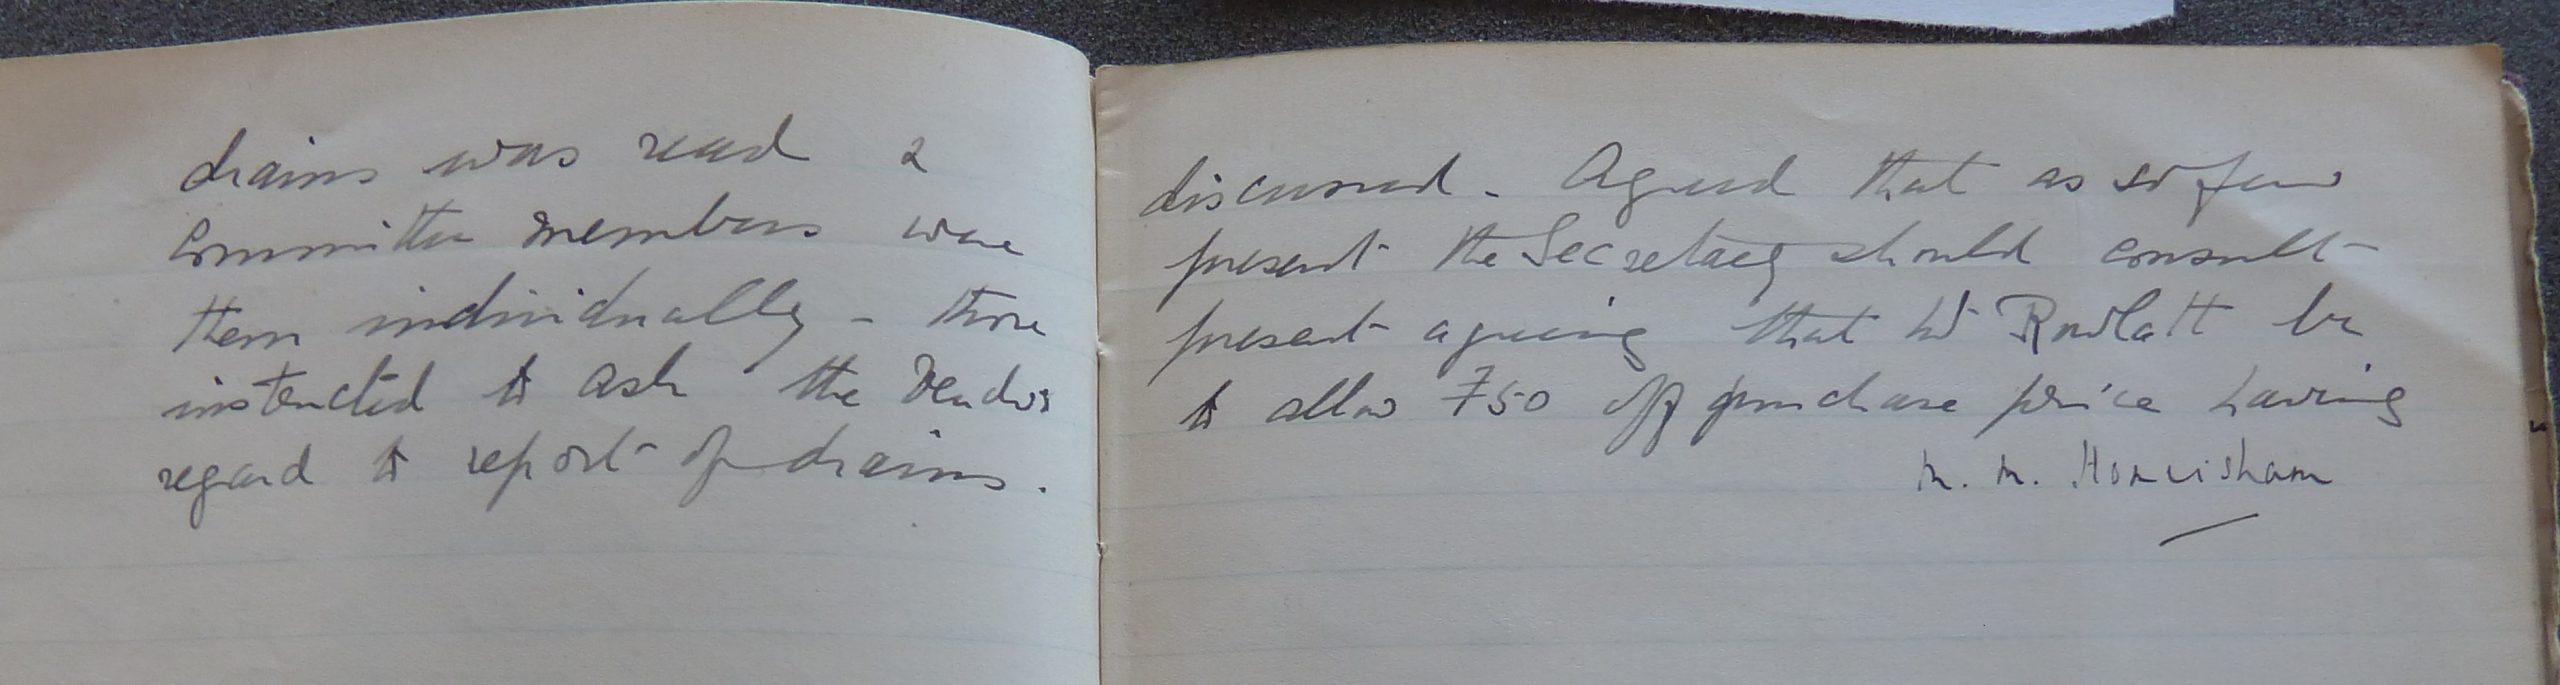 drains was read & discussed. Agreed that as so few
committee members were present the Secretary should consult
them individually - those present agreeing that Rowlatt be
instructed to ask the Vendors to allow £50 off purchase price having
regard to report of drains.
M. M. Homersham